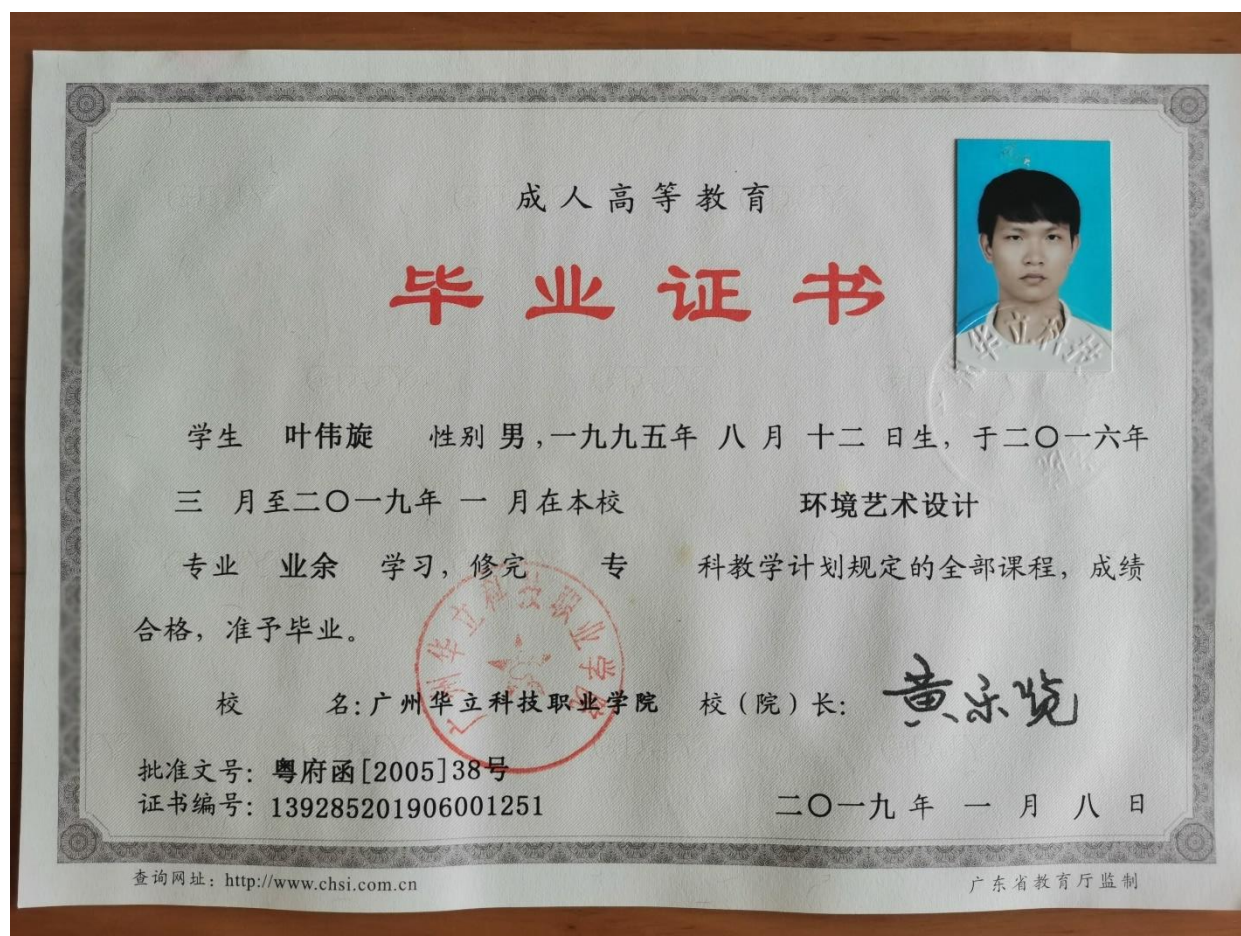 成人高等教育
毕业证书
学生 叶伟旋 性别 男，一九九五年 八 月 十二 日生，于二〇一六年
三 月至二〇一九年 一 月在本校 环境艺术设计
专业 业余 学习，修完 专 科教学计划规定的全部课程，成绩
合格，准予毕业。
校 名：广州华立科技职业学院 校（院）长：
广州华立科技职业学院
批准文号：粤府函[2005]38号
证书编号：139285201906001251 二〇一九 年 一 月 八 日
查询网址：http://www.chsi.com.cn 广东省教育厅监制